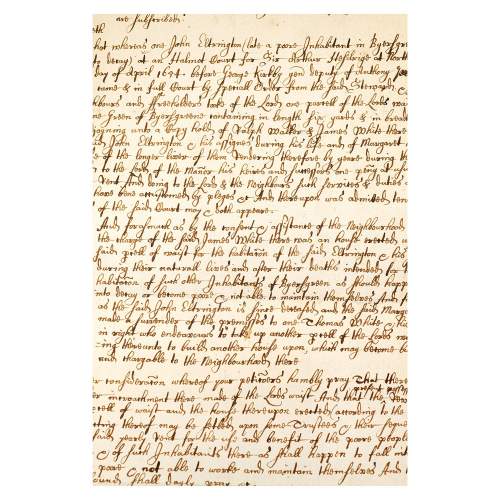 are subscribed
hat whereas one John Eltrington (late a poore Inhabitant in Byersgre
to decay) at an Halmot Court for Sir Arthur Hesilrige at North
day of April 1654. before George Kirkby gen deputy of Anthony
& in full Court by speciall Order from the said Steward
hbours and ffreeholders tooke of the Lord one parcell of the Lords wa
ne Green of Byersgreene containing in length six yards & in bread
oyning unto a Copy hold of Ralph Walker & James White there
said John Eltrington & his assignes during his life and of Margaret
e of the longer liver of them Rendering therefore by yeare during th
to the Lord of the Manor his heires and successors one peny at
Rent And doing to the Lord & the Neighbours such services & duties
have bene accustomed by pleges And thereupon was admitted ten
of the said Court may & doth appeare.
And forasmuch as by the consent & assistance of the Neighbourhood
the charge of the said James White there was an house erected
said prcell of waist for the habitation of the said Eltrington & his
during their naturall lives and after their deaths intended for
habitation of such other Inhabitants of Byersgreen as should happen
into decay or become poore & not able to maintain themselves And
as the said John Eltrington is since deceased and the said Marga
made a surrender of the premisses to one Thomas White &
in right who endeavours to take up another prcell of the Lords
cing thereunto to build another house upon, which may become
and chargable to the Neighbourhood there
consideration whereof your petitioers humbly pray That there
er incroachment there made of the Lords waist. And that the
rcell of waist and the house thereupon erected according to the
ting thereof may be setled upon some Trustees & their
said yearly Rent for the use and benefit of the poore people
& of such Inhabitants there as shall happen to fall int
poore & not able to worke and maintain themselves And
ound shall dayly pray